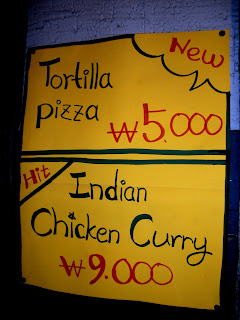 New
Tortilla
pizza
₩5.000
Hit
Indian
Chicken Curry
₩9.000